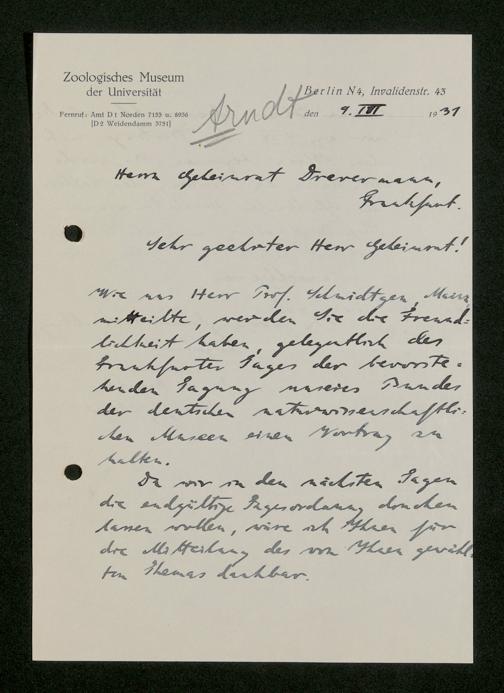 Zoologisches Museum
der Universität
Fernruf: Amt D1 Norden 7153 u. 6936
[D2 Weidendamm 3731]
Arndt
Berlin N4, Invalidenstr. 43
den 9. VII 1931
Herrn Geheimrat Drevermann,
Frankfurt.
Sehr geehrter Herr Geheimrat!
Wie uns Herr Prof. Schmidtgen, Mainz,
mitteilte, werden Sie die Freund=
lichkeit haben, gelegentlich des
Frankfurter Tages der bevorste=
henden Tagung unseres Bundes
der deutschen naturwissenschaftli=
chen Museen einen Vortrag zu
halten.
Da wir in den nächsten Tagen
die endgültige Tagesordnung drucken
lassen wollen, wäre ich Ihnen für
die Mitteilung des von Ihnen gewähl
ten Themas dankbar.